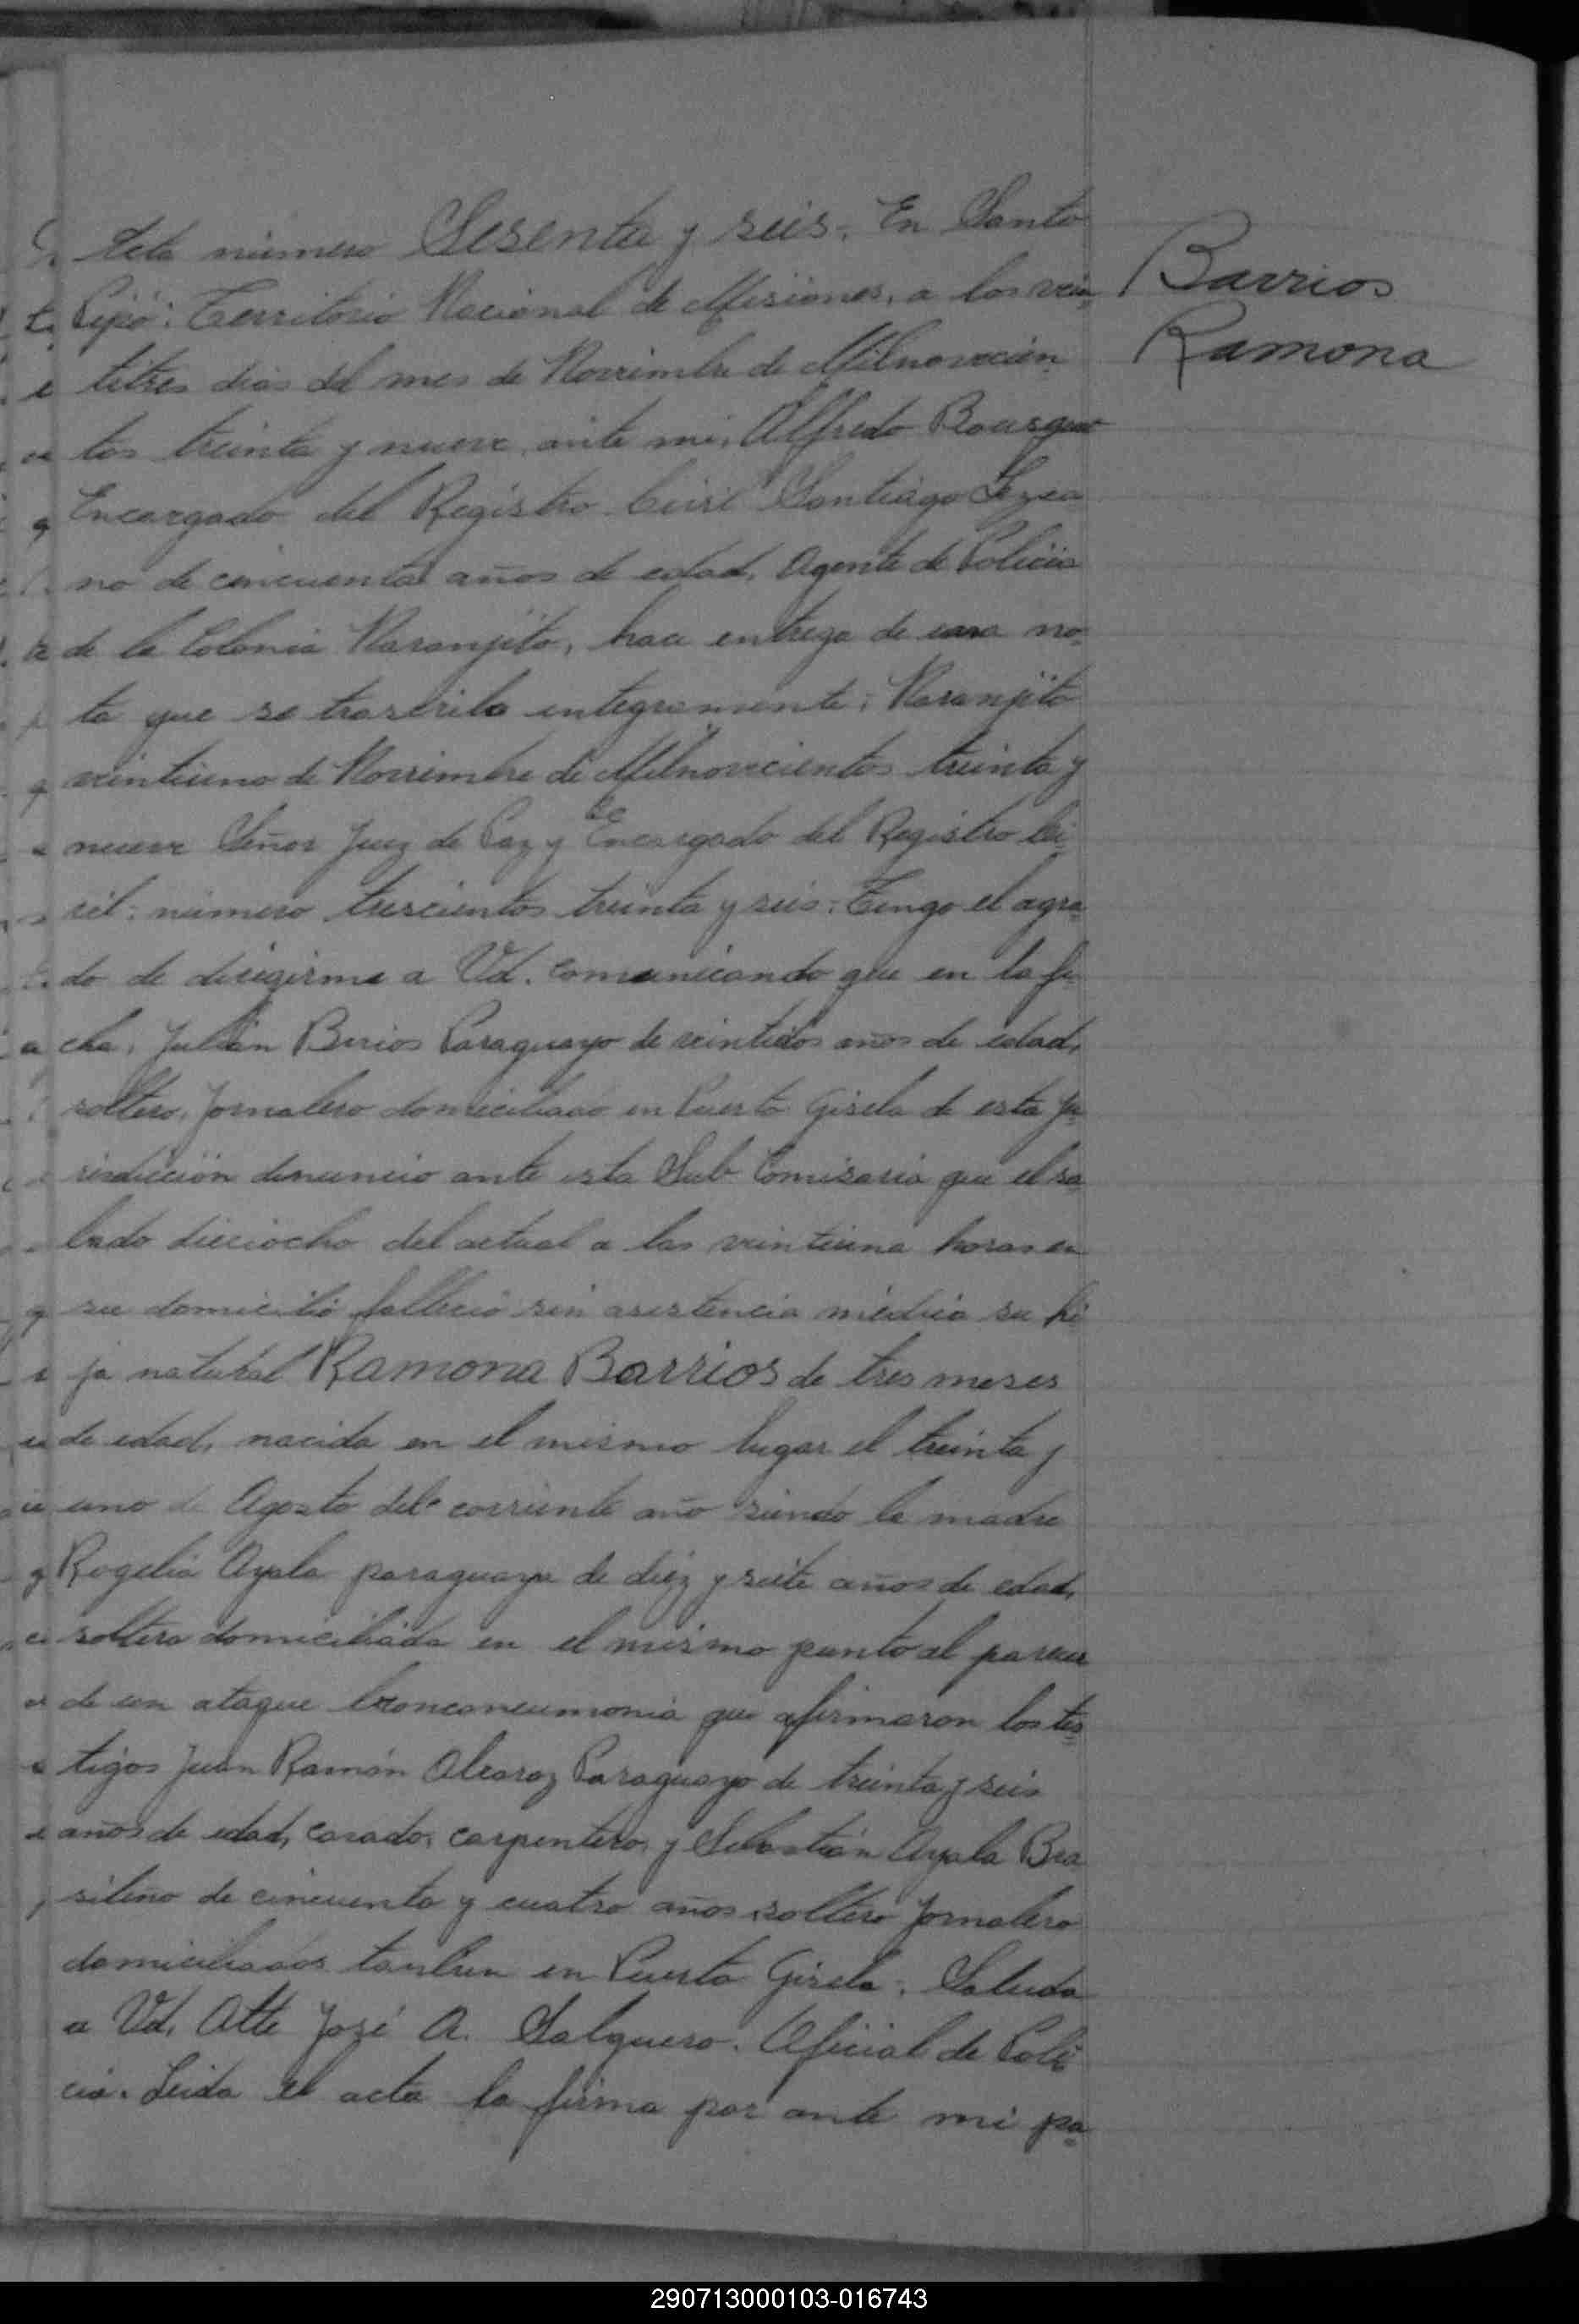 Acta número Sesenta y seis. En Santo
Pipó: Territorio Nacional de Misiones, a los vein
titres dias del mes de Noviembre de Milnovecien
tos treinta y nueve, ante mi, Alfredo
Encargado del Registro Civil Santiago Lezca
no de cincuenta años de edad, Agente de Policia
de la Colonia Naranjito, hace entrega de una no
ta que se trascribe integramente: Naranjito
veintiuno de Noviembre de Milnovecientos treinta y
nueve Señor Juez de Paz y Encargado del Registro Ci
vil: número trescientos treinta y seis: Tengo el agra
do de dirigirme a Vd. comunicando que en la fe
cha, Julián Berios Paraguayo de veintidos años de edad,
soltero, Jornalero domiciliado en Puerto Gisela de esta ju
risdicción denuncio ante esta Sub Comisaria que el sa
bado dieciocho del actual a las veintiuna horas en
su domicilio fallecio sin asistencia médica su hi
ja natural Ramona Barrios de tres meses
de edad, nacida en el mismo lugar el treinta y
uno de Agosto del corriente año siendo la madre
Rogelia Ayala paraguaya de diez y siete años de edad,
soltera domiciliada en el mismo punto al parecer
de un ataque bronconeumonia que afirmaron los tes
tigos Juan Ramón Alcaraz Paraguayo de treinta y seis
años de edad, casado, carpintero, y Sebastián Ayala Bra
sileño de cincuenta y cuatro años soltero Jornalero
domiciliados tanbien en Puerto Gisela. Saluda
a Vd. Atte José A. Salguero. Oficial de Poli
cia. Leida el acta la firma por ante mi pa
Barrios
Ramona
290713000103-016743